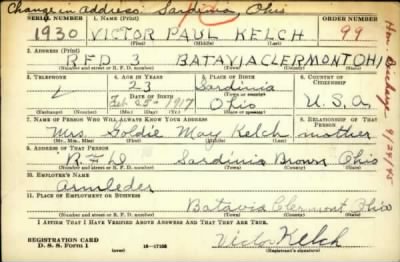 Change in address: Sardinia, Ohio
SERIAL NUMBER 1. NAME (Print) ORDER NUMBER
1930 VICTOR PAUL KELCH 99
(First) (Middle) (Last)
2. ADDRESS (Print)
RFD 3 BATAVIA CLERMONT OHI
(Number and street or R. F. D. number) (Town) (County) (State)
3. TELEPHONE 4. AGE IN YEARS 5. PLACE OF BIRTH 6. COUNTRY OF CITIZENSHIP
23 Sardinia
DATE OF BIRTH (Town or county)
Feb 28th 1917 Ohio U.S.A.
(Exchange) (Number) (Mo.) (Day) (Yr.) (State or country)
7. NAME OF PERSON WHO WILL ALWAYS KNOW YOUR ADDRESS 8. RELATIONSHIP OF THAT PERSON
Mrs. Goldie May Kelch mother
(Mr., Mrs., Miss) (First) (Middle) (Last)
9. ADDRESS OF THAT PERSON
R F D Sardinia Brown Ohio
(Number and street or R. F. D. number) (Town) (County) (State)
10. EMPLOYER'S NAME
Armleder
11. PLACE OF EMPLOYMENT OR BUSINESS
Batavia Clermont Ohio
(Number and street or R. F. D. number) (Town) (County) (State)
I AFFIRM THAT I HAVE VERIFIED ABOVE ANSWERS AND THAT THEY ARE TRUE.
REGISTRATION CARD
D. S. S. Form 1 (over) 16-17105
Victor Kelch
(Registrant's signature)
Hon. Discharge 9/24/45